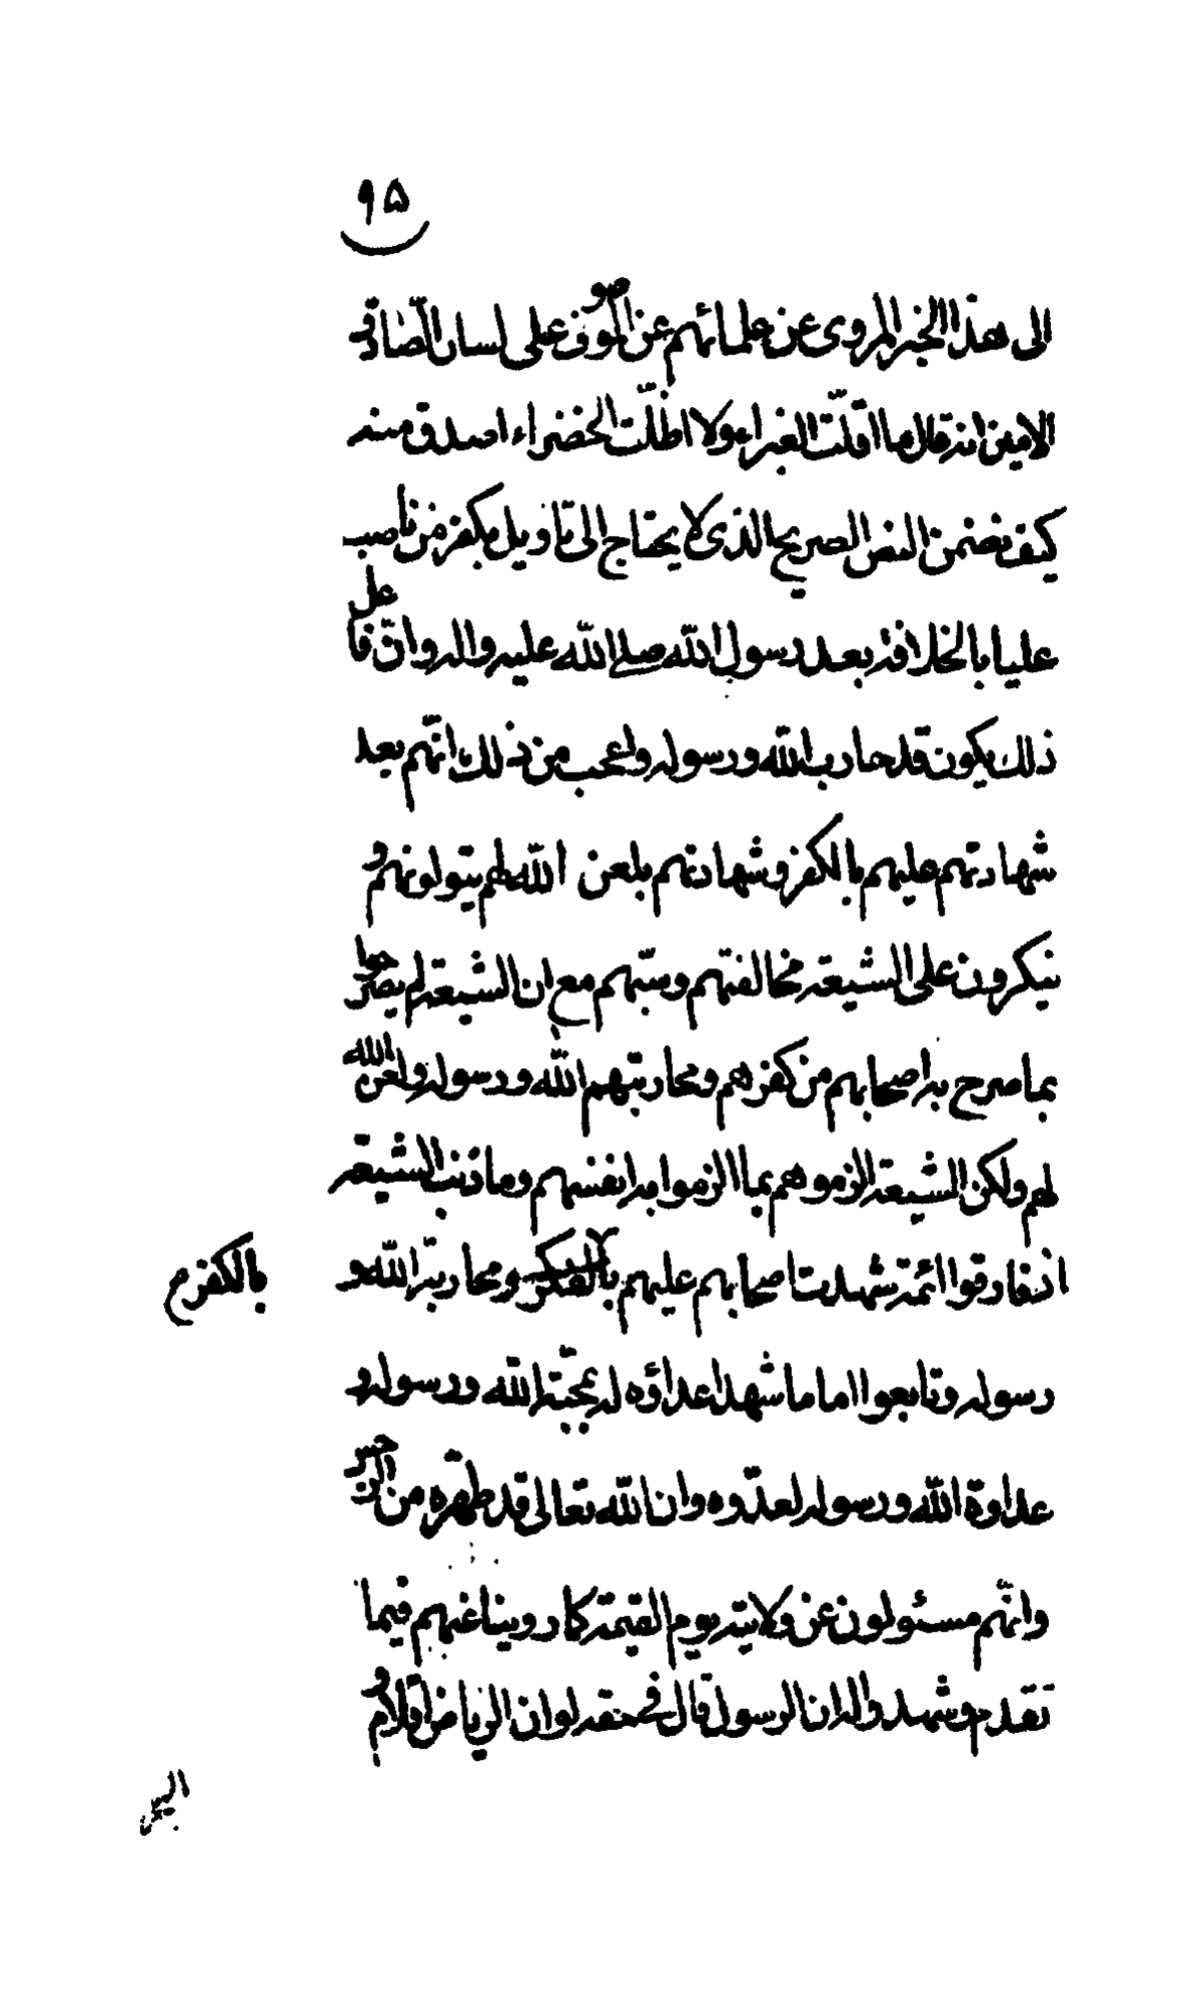 ٩٥
الى هذا الخبر المروى عن علمائهم عن الموصوف على لسان الصّادق
الامين انه قال ما اقلّت الغبراء ولا اظلّت الخضراء اصدق منه
كيف تضمن النص الصريح الذى لا يحتاج الى تاويل بكفر من ناصب
عليا بالخلافة بعد رسول الله صلى الله عليه واله وان فاعل
ذلك يكون قد حارب الله ورسوله واعجب من ذلك انّهم بعد
شهادتهم عليهم بالكفر وشهادتهم بلعن الله لهم يتولونهم و
ينكرون على الشيعة مخالفتهم وسبّهم مع ان الشيعة لم يصرحوا
بما صرح به اصحابهم من كفرهم ومحاربتهم الله ورسوله ولعن الله
لهم ولكن الشيعة الزموهم بما الزموا به انفسهم وما ذنب الشيعة
اذ فارقوا ائمة شهدت اصحابهم عليهم ومحاربة الله و
بالكفر م
رسوله وتابعوا اماما شهد اعداؤه له بمحبّة الله ورسوله و
عداوة الله ورسوله لعدّوه وان الله تعالى قد طهّره من الرجس
وانّهم مسئولون عن ولايته يوم القيمة كما روينا عنهم فيما
تقدم وشهدوا له ان الرسول قال فى حقه لو ان الرياض اقلام و
البحر